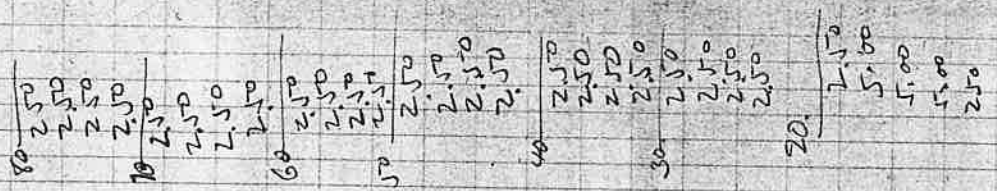 80
2.50
2.50
2.50
2.50
70
2.50
2.50
2.50
2.50
60
2.50
2.50
2.50
2.50
50
2.50
2.50
2.50
2.50
40
2.50
2.50
2.50
2.50
30
2.50
2.50
2.50
2.50
20.
2.50
5.00
5.00
5.00
2.50